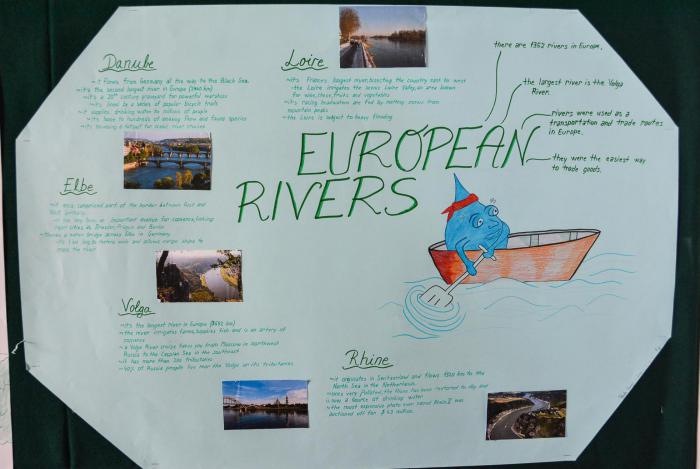 Danube
- it flows from Germany all the way to the Black Sea.
- it's the second longest river in Europe (2860 km)
- it's a 20th century graveyard for powerful warships
- it's lined by a series of popular bicycle trails
- it supplies drinking water to millions of people
- it's home to hundreds of amazing flora and fauna species
- it's becoming a hotspot for scenic river cruises
Loire
- it's France's longest river, bisecting the country east to west
- the Loire irrigates the scenic Loire Valley, an area known
for wine, trees, fruits and vegetables
- it's raging headwaters are fed by melting snows from
mountain peaks
- the Loire is subject to heavy flooding
there are 1352 rivers in Europe.
the largest river is the Volga
River.
rivers were used as a
transportation and trade routes
in Europe.
they were the easiest way
to trade goods.
EUROPEAN
RIVERS
Elbe
- it once comprised part of the border between East and
West Germany
- it has long been an important avenue for commerce, linking
major cities as Dresden, Prague and Berlin
- there's a water bridge across Elbe in Germany
the river
Volga
- it's the longest river in Europe (3692 km)
- the river irrigates farms, supplies fish and is an artery of
commerce
- a Volga River cruise takes you from Moscow in northwest
Russia to the Caspian Sea in the southeast
- it has more than 200 tributaries
- 40% of Russia people live near the Volga or its tributaries
Rhine
- it originates in Switzerland and flows 1320 km to the
North Sea in the Netherlands.
- once very polluted, the Rhine has been restored to
is now a source of drinking water
- the most expensive photo ever named Rhein II was
auctioned off for $ 4.3 million.